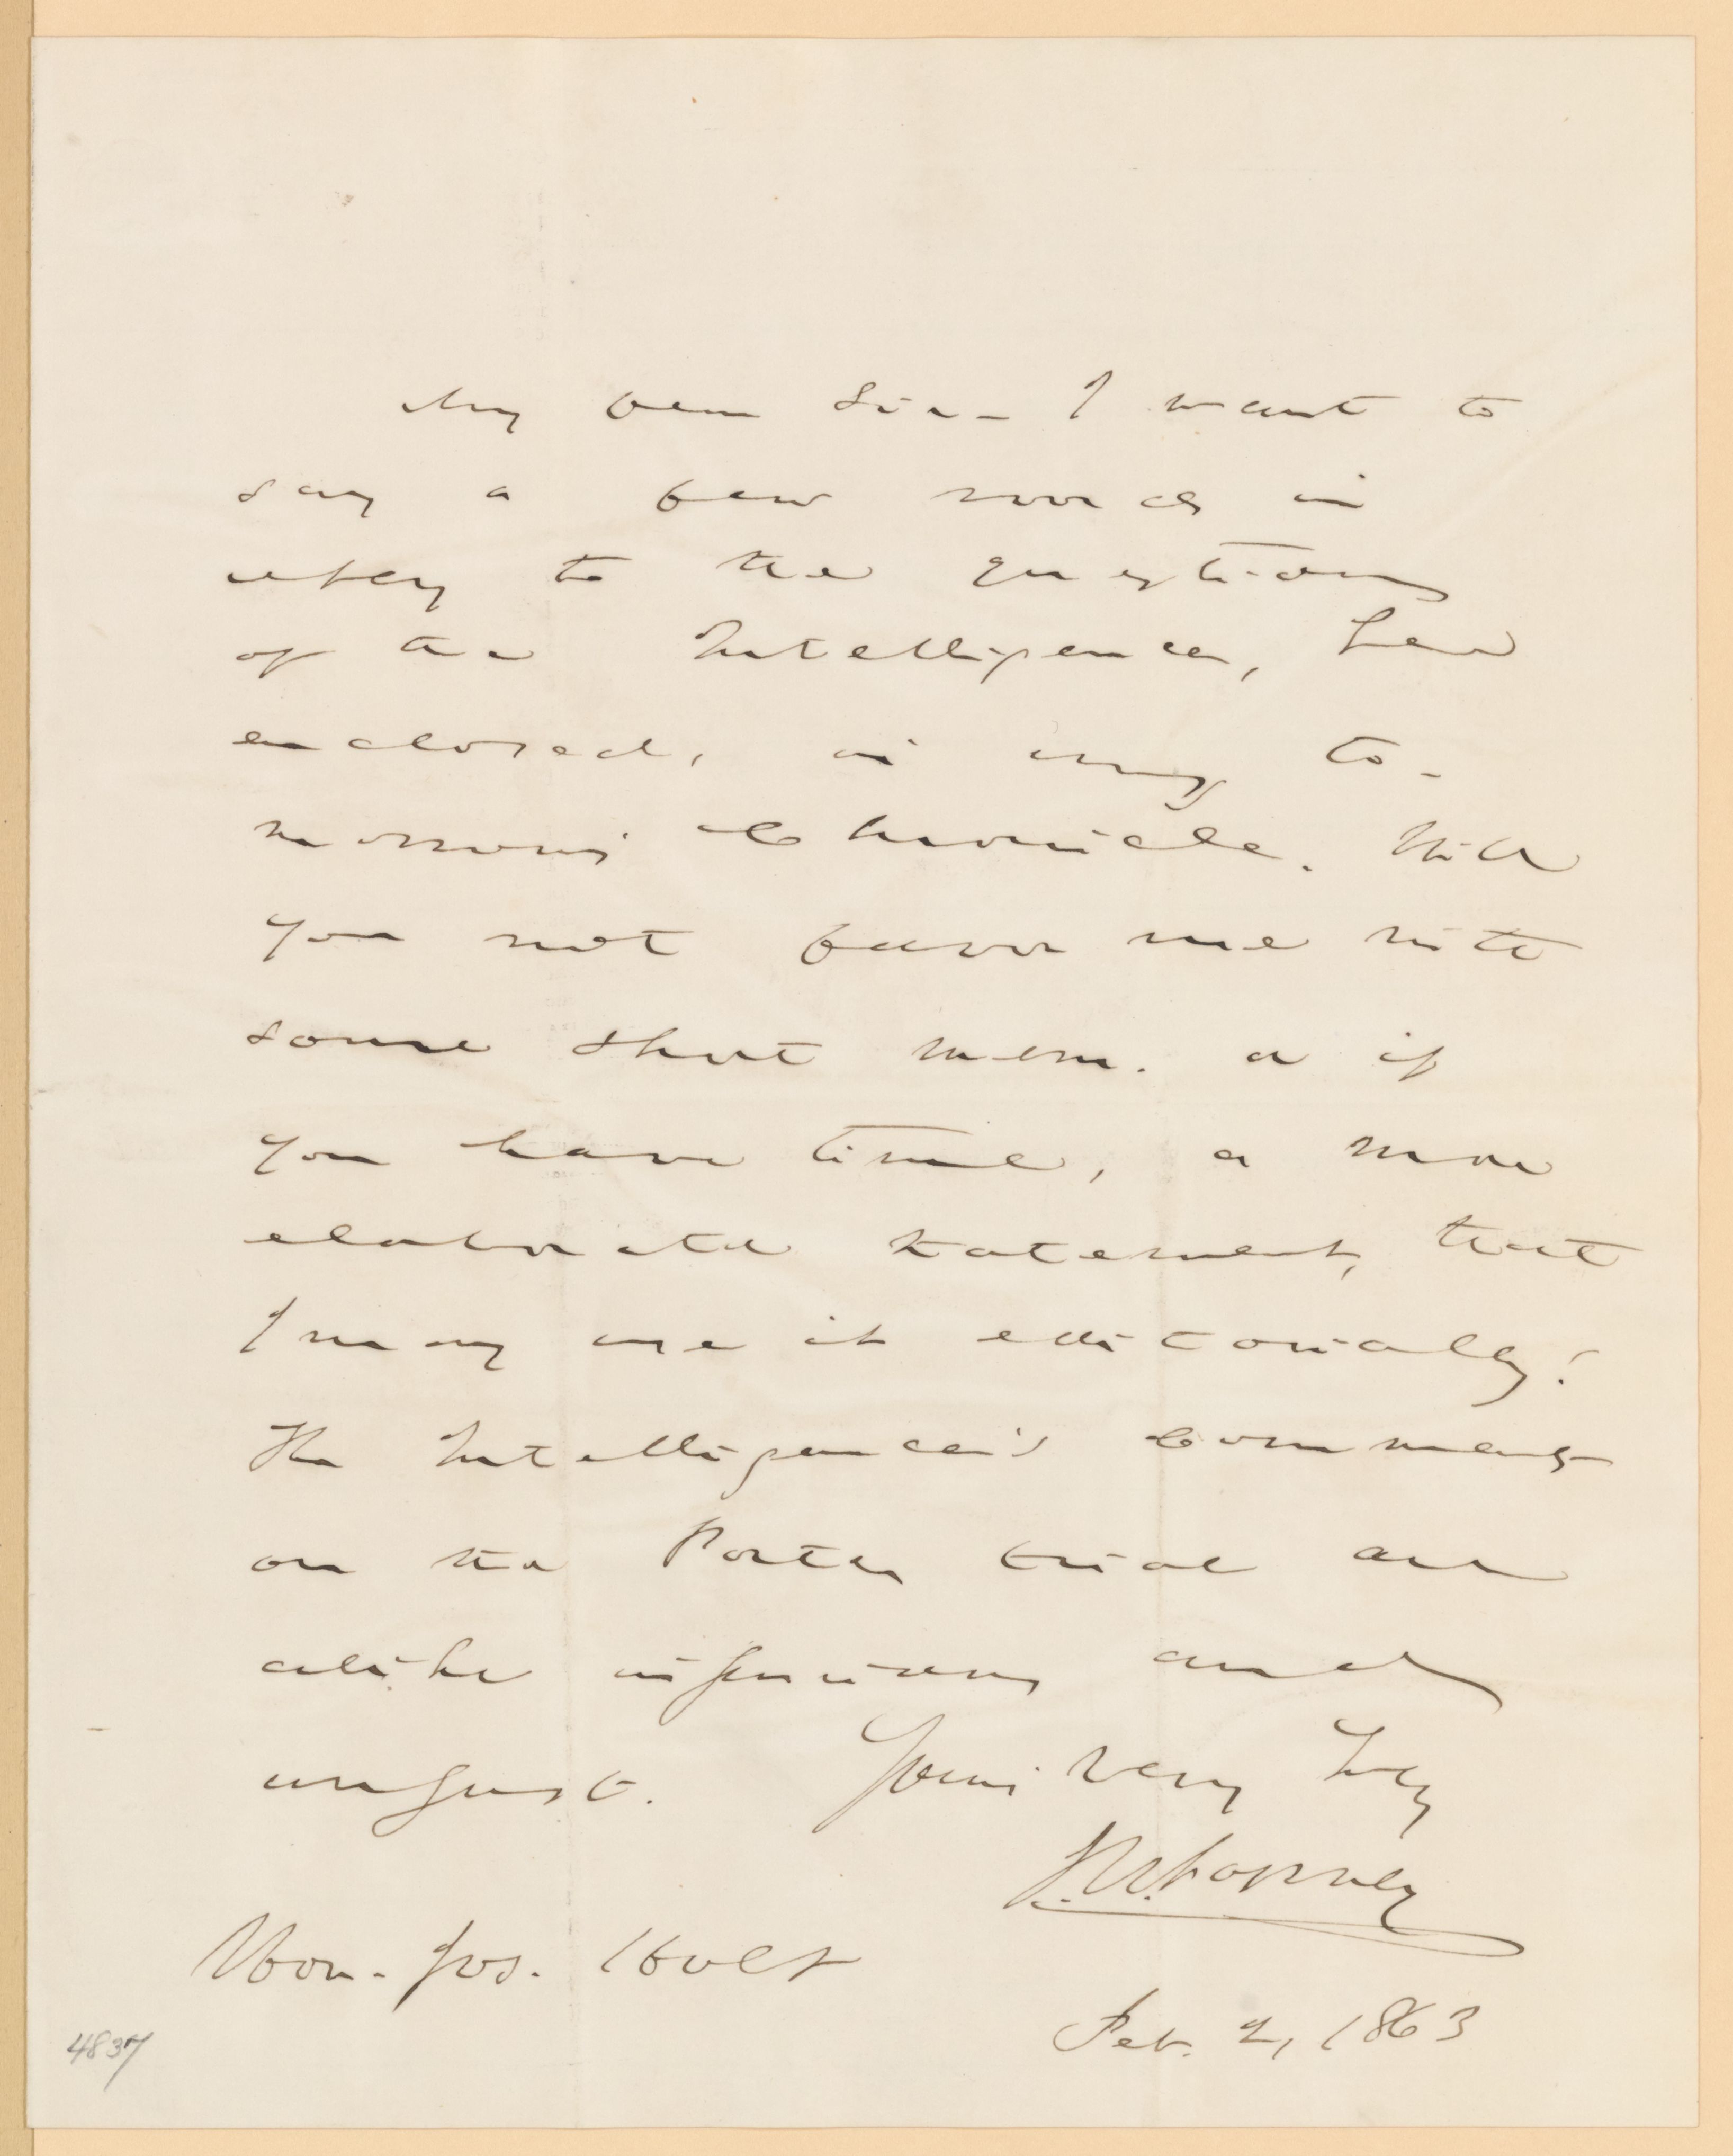 My Dear Sir- I want to
say a few words in
reply to the questions
of the Intelligencer, here
enclosed, in my to-
morrow's Chronicle. Will
you not favor me with
some short mem. or if
you have time, a more
elaborate statement, that
I may use it editorially?
The Intelligencer's comments
on the Porter trial are
alike injurious and
unjust. Yours very truly
J.W. Forney
Hon. Jos. Holt
Feb. 2, 1863
4837